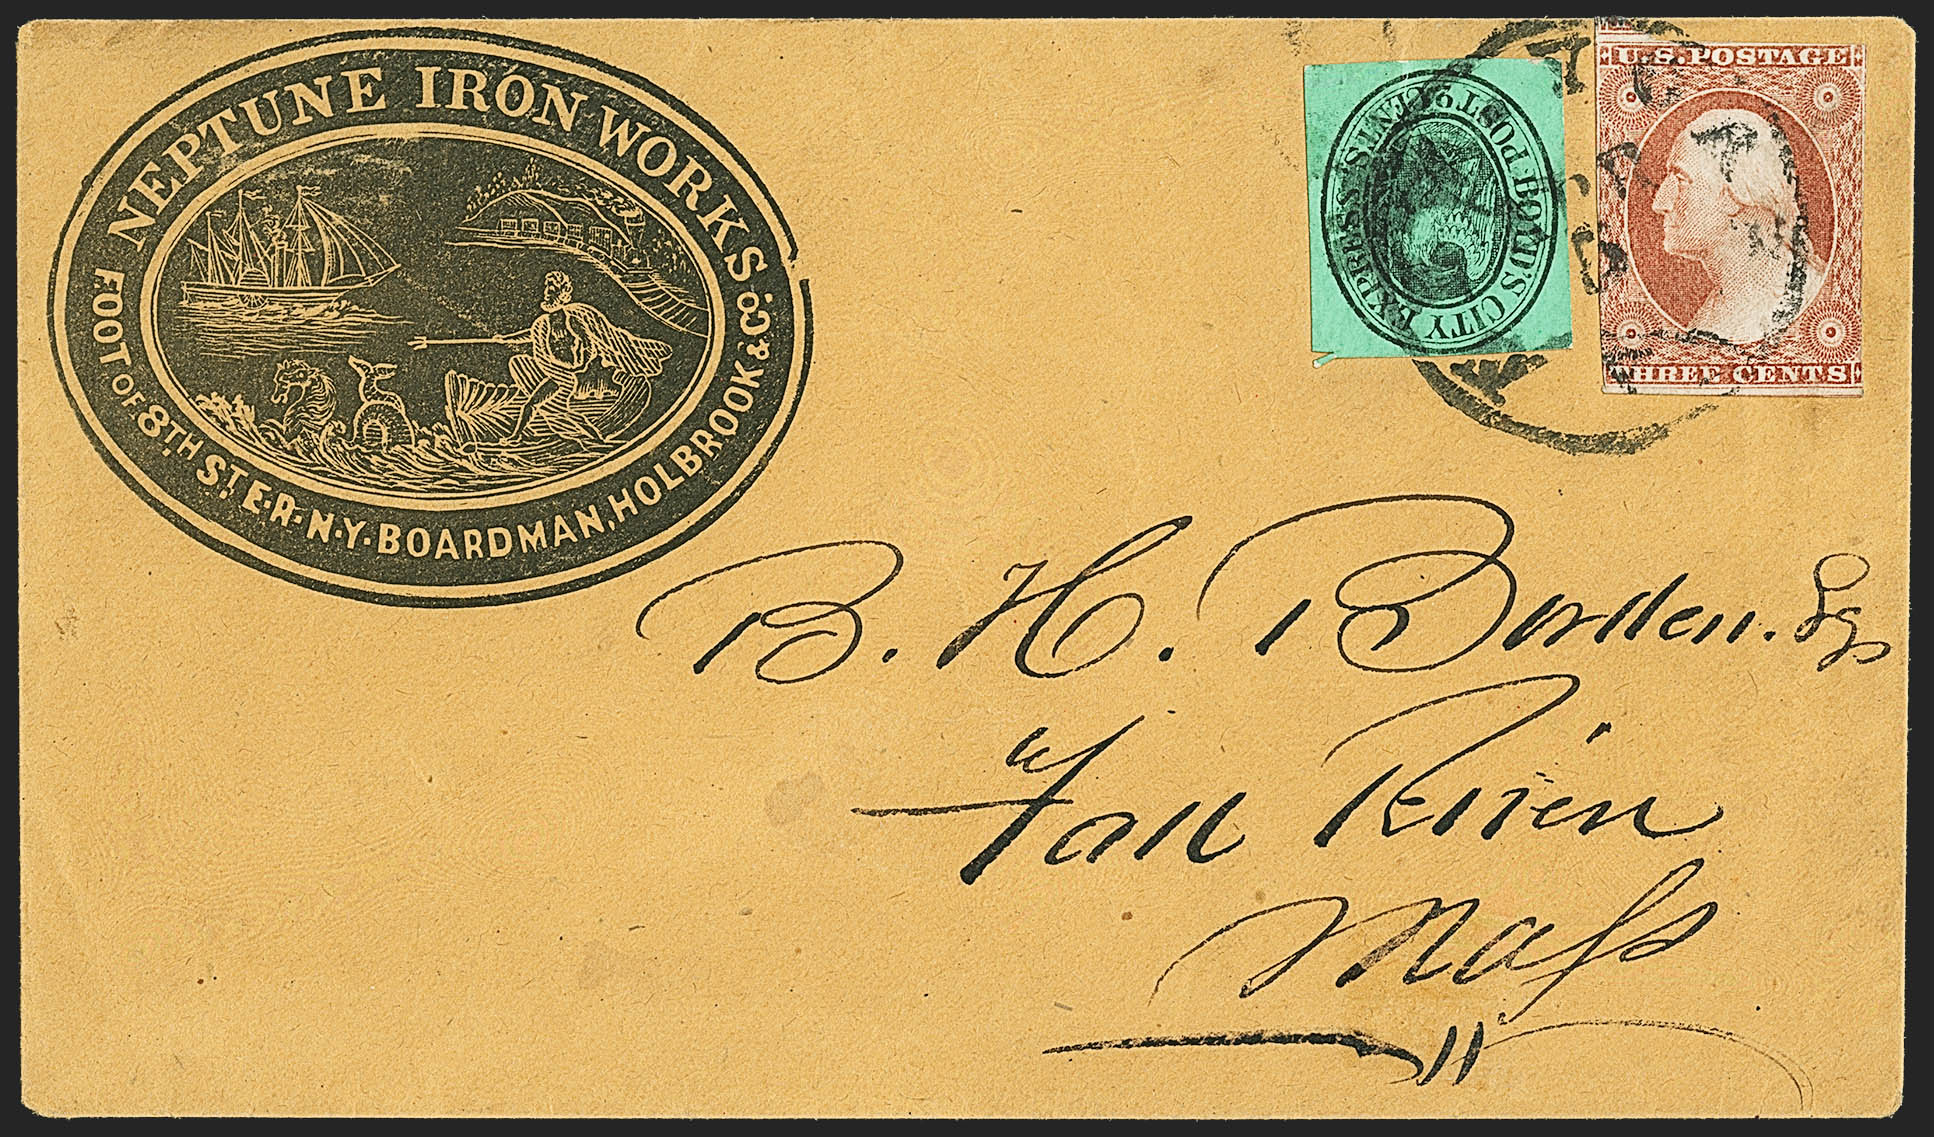 NEPTUNE IRON WORKS
FOOT OF 8TH ST. E.R. N.Y. BOARDMAN, HOLBROOK & CO.
BOYD'S CITY EXPRESS POST 2 CENTS
U.S. POSTAGE
THREE CENTS
B. H. Borden. Esq
Fall River
Mass